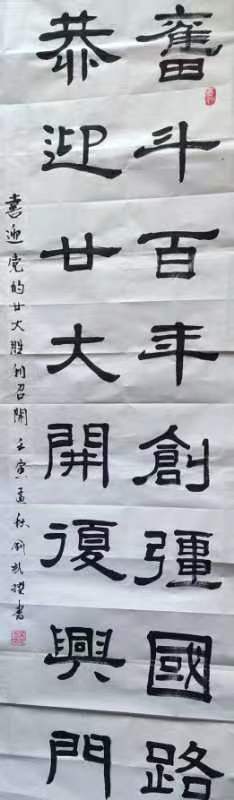 奮斗百年創彊國路
恭迎廿大開復興門
喜迎党的廿大胜利召開壬寅孟秋刘书